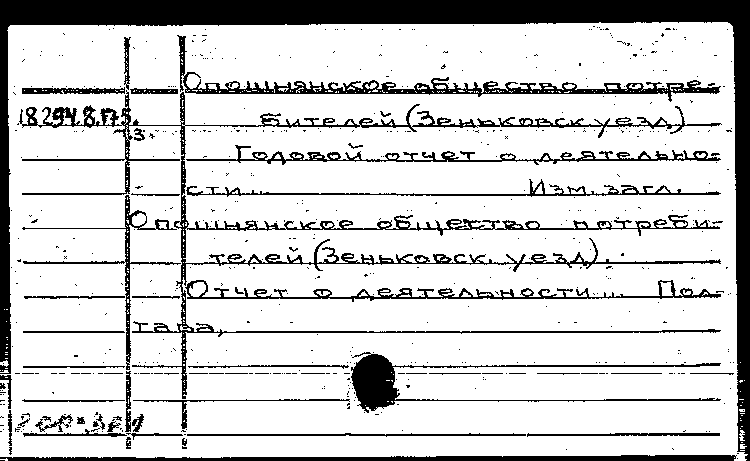 Опошнянское общество потре-
18.294.8.175. бителей (Зеньковск. уезд)
3.
Годовой отчет о деятельно-
сти... Изм. загл.
Опошнянское общество потреби-
телей (Зеньковск. уезд).
Отчет о деятельности... Пол-
тава,